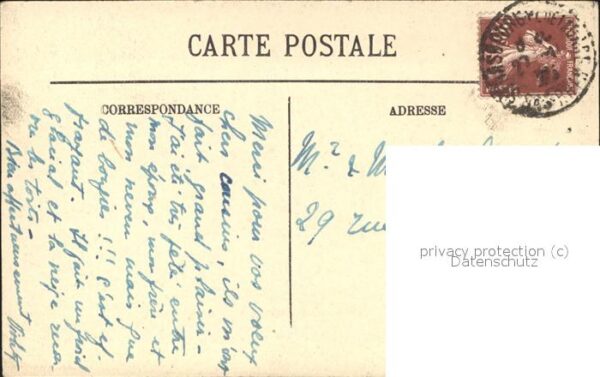 CARTE POSTALE
CORRESPONDANCE
ADRESSE
Merci pour vos voeux
chers cousins, ils m'ont
fait grand plaisir -
J'ai été très fêtée entre
mon époux, mon frère et
mon neveu mais que
de loupies !!! c'est ef-
frayant. Il fait un froid
glacial et la neige recou-
vre les toits -
Bien affectueusement
Mr & M
29 rue
privacy protection (c)
Datenschutz